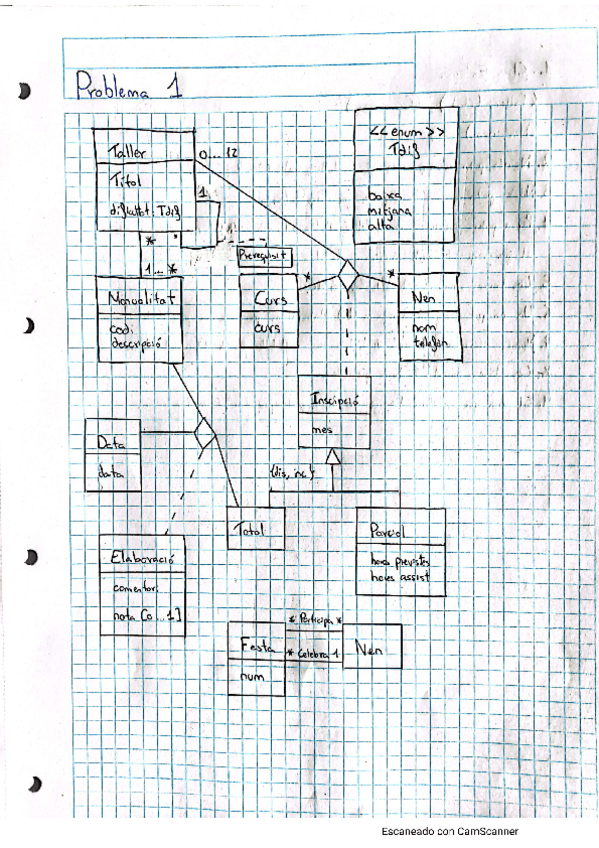 Problema 1
<<enum>>
Tdif
baixa
mitjana
alta
Taller
Títol
dificultat: Tdif
0...12
1
*
*
1...*
Prerequisit
Manualitat
codi
descripció
Curs
curs
*
*
Nen
nom
telèfon
Inscipció
mes
{dis, inc}
Data
data
Total
Parcial
hores previstes
hores assist
Elaboració
comentari
nota [0...1]
* Participa *
Festa
* Celebra 1
Nen
num
Escaneado con CamScanner